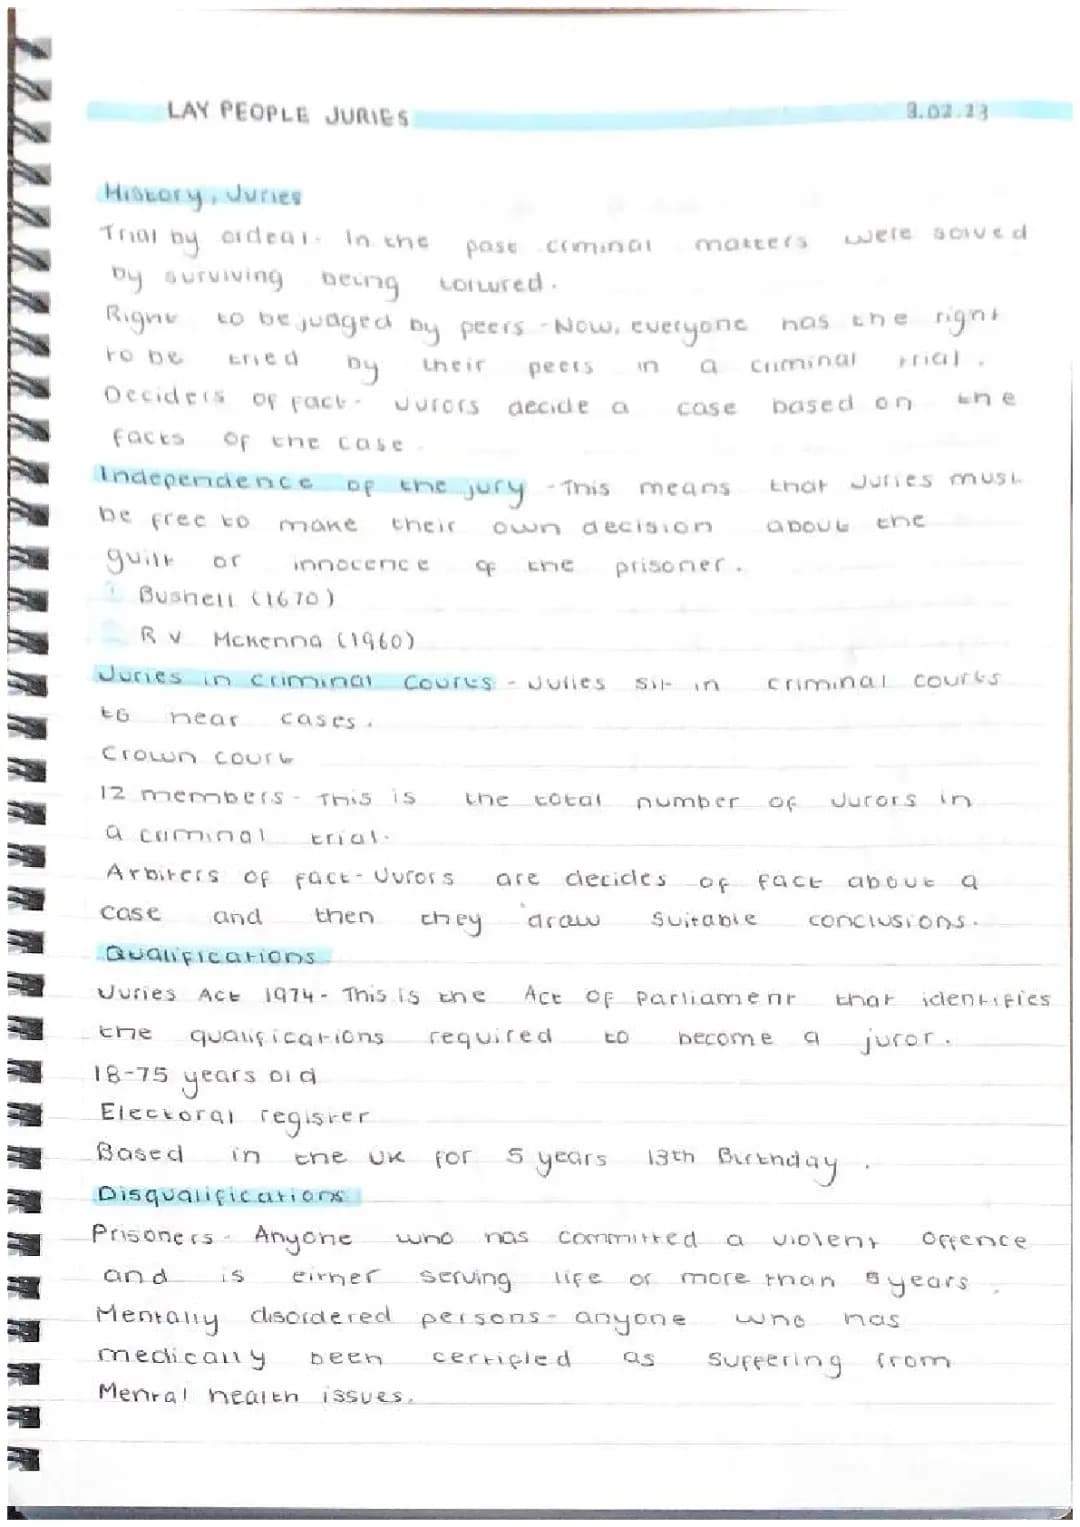 LAY PEOPLE JURIES 9.02.23
History, Juries
Trial by ordeal- In the past criminal matters were solved
by surviving being tortured.
Right to be judged by peers - Now, everyone has the right
to be tried by their peers in a criminal trial.
Deciders of fact- Jurors decide a case based on the
facts of the case.
Independence of the jury - This means that Juries must
be free to make their own decision about the
guilt or innocence of the prisoner.
Bushell (1670)
R v McKenna (1960)
Juries in criminal courts - Juries sit in criminal courts
to hear cases.
Crown court
12 members- This is the total number of Jurors in
a criminal trial.
Arbiters of fact- Jurors are decides of fact about a
case and then they draw suitable conclusions.
Qualifications
Juries Act 1974- This is the Act of Parliament that identifies
the qualifications required to become a juror.
18-75 years old
Electoral register
Based in the UK for 5 years 13th Birthday.
Disqualifications
Prisoners- Anyone who has committed a violent offence
and is either serving life or more than 5 years.
Mentally disordered persons- anyone who has
medically been certified as suffering from
Mental health issues.